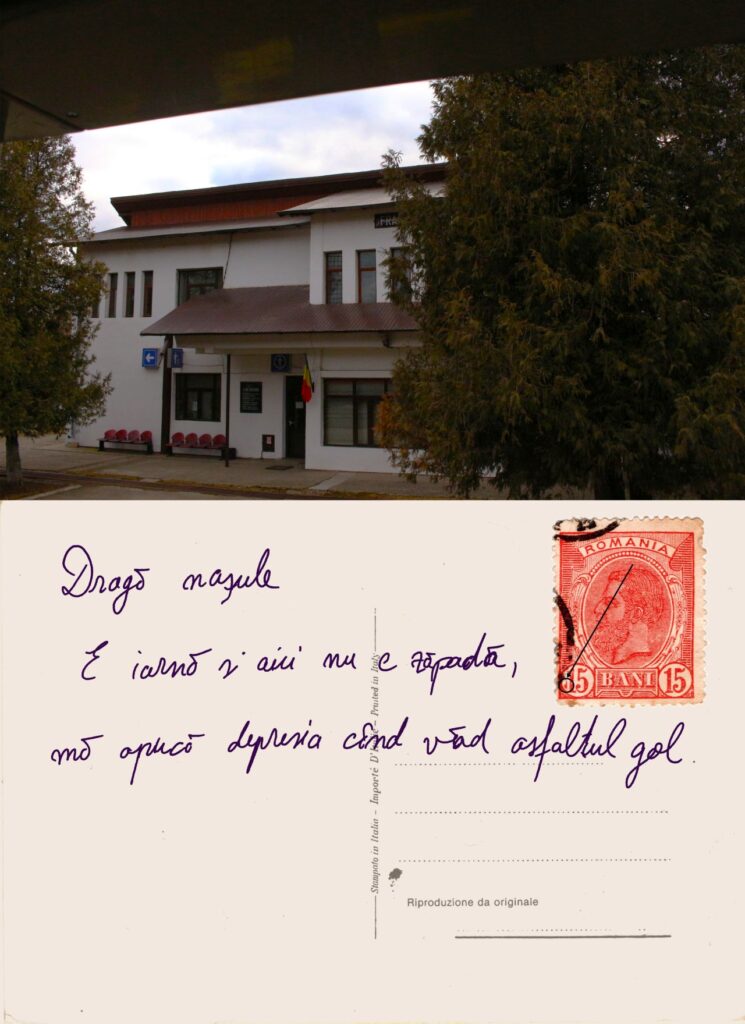 FRA
Dragă nașule
ROMANIA
E iarnă și aici nu e zăpadă,
15 BANI 15
mă apucă depresia când văd asfaltul gol
Stampato in Italia - Importé D'Italie - Printed in Italy
Riproduzione da originale